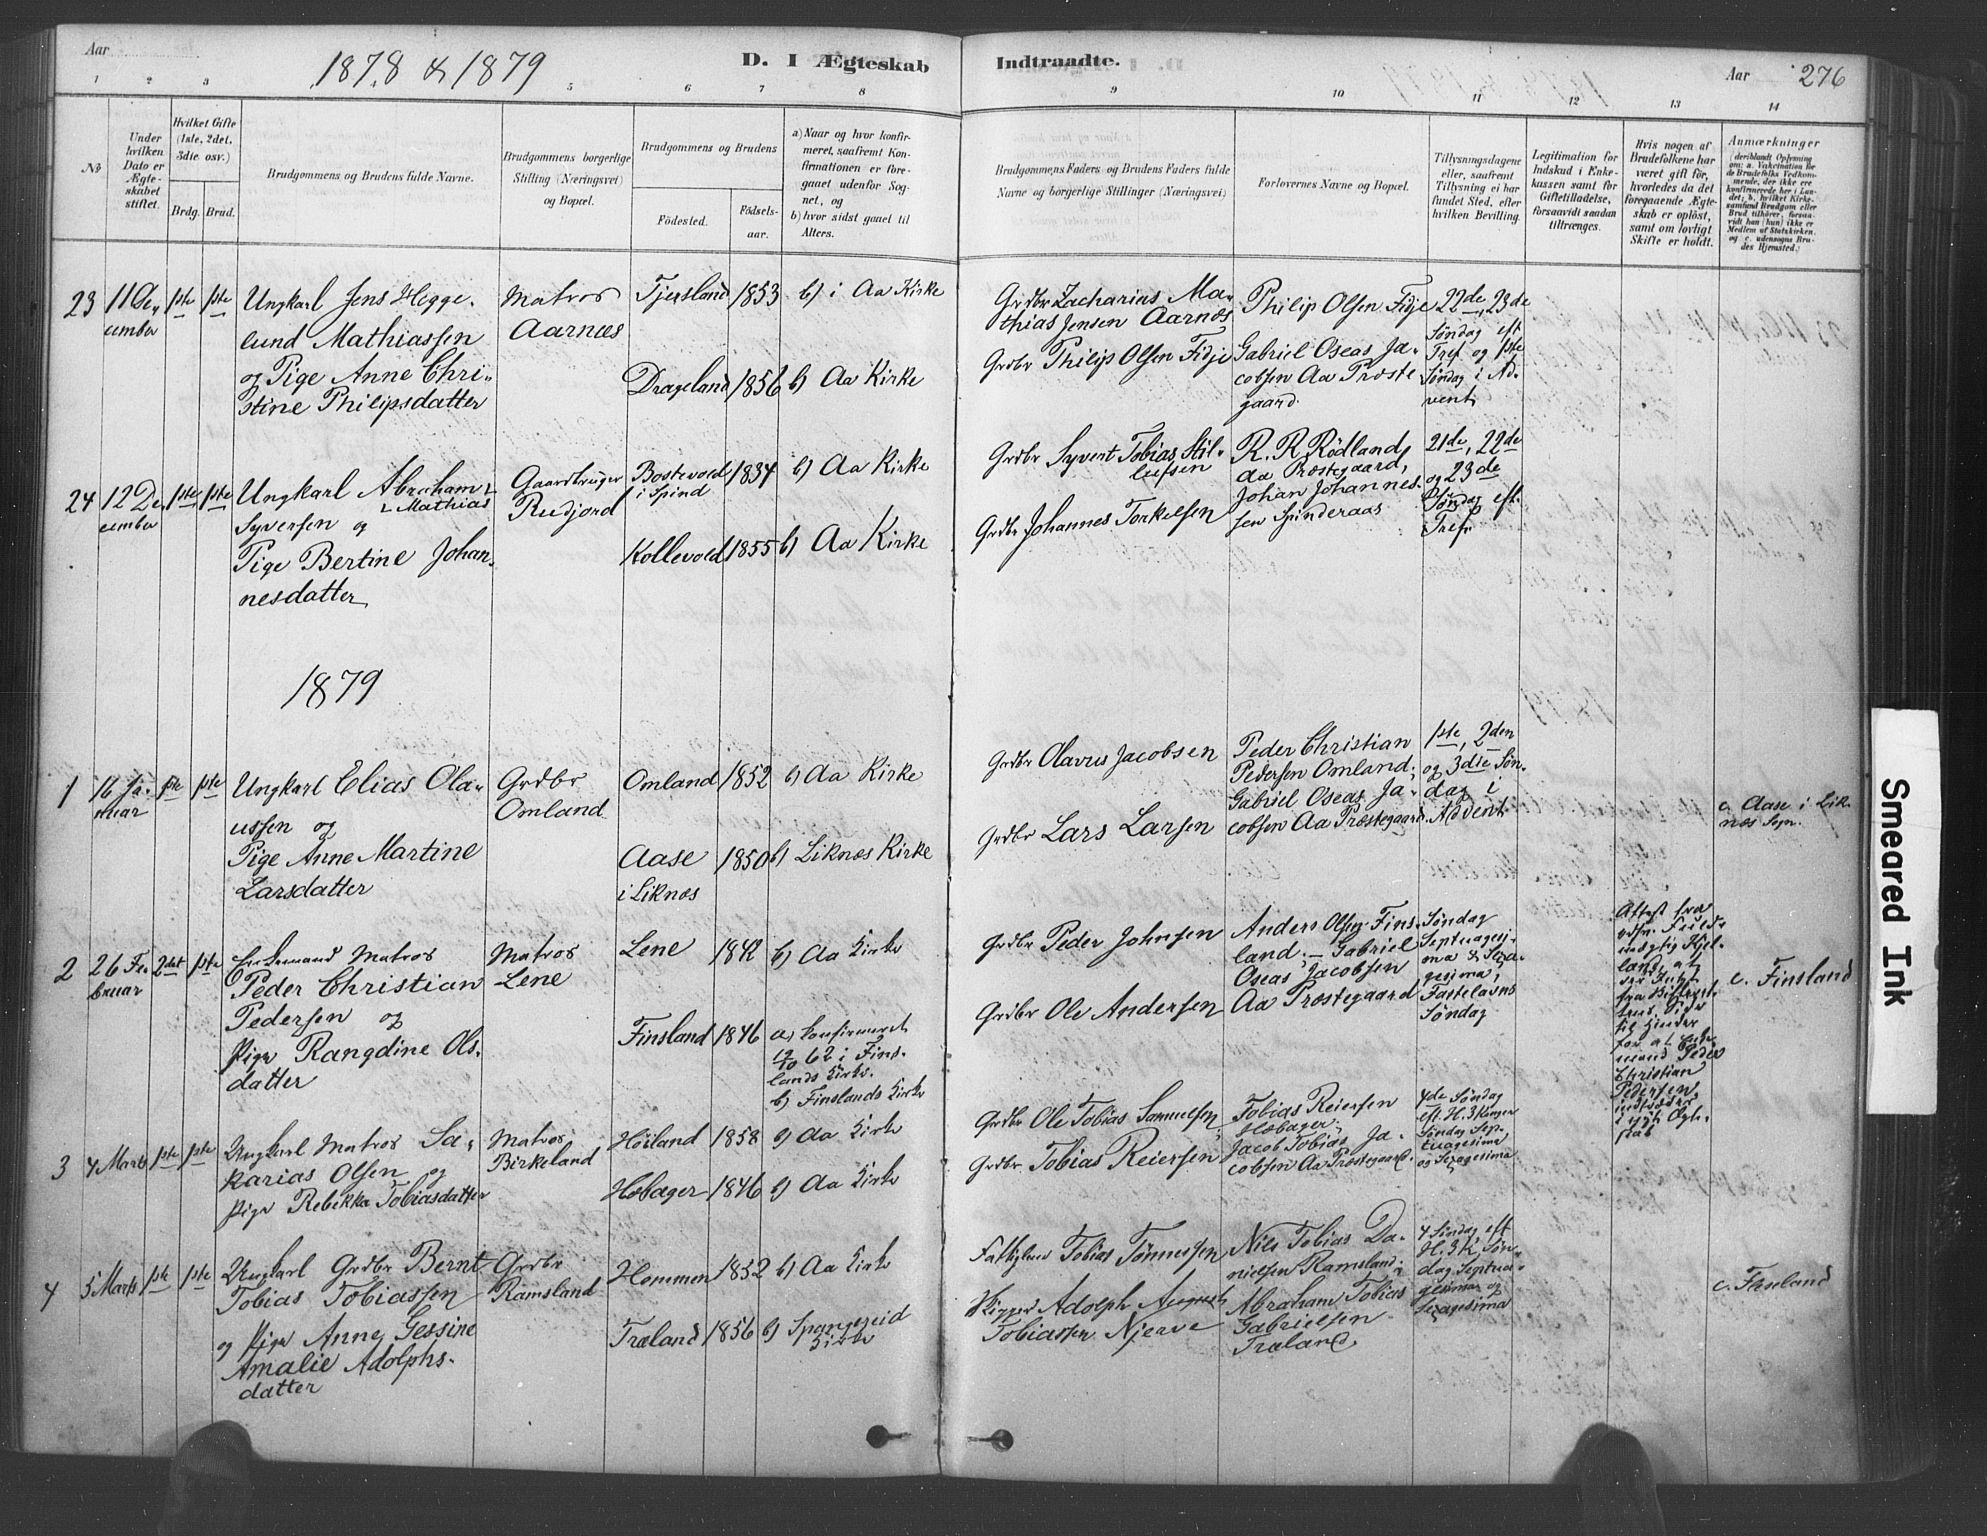 Aar
1878 & 1879
D. I Ægteskab
Indtraadte.
Aar
276
1 2 3 5 6 7 8 9 10 11 12 13 14
No
Under hvilken Dato er Ægteskabet stiftet.
Hvilket Gifte (1ste, 2det, 3die osv.)
Brdg. Brud.
Brudgommens og Brudens fulde Navne.
Brudgommens borgerlige Stilling (Næringsvei) og Bopæl.
Brudgommens og Brudens
Födested.
Födselsaar.
a) Naar og hvor konfirmeret, saafremt Konfirmationen er foregaaet udenfor Sognet, og
b) hvor sidst gaaet til Alters.
Brudgommens Faders og Brudens Faders fulde Navne og borgerlige Stillinger (Næringsvei)
Forlovernes Navne og Bopæl.
Tillysningsdagene eller, saafremt Tillysning ei har fundet Sted, efter hvilken Bevilling.
Legitimation for Indskud i Enkekassen samt for Giftetilladelse, forsaavidt saadan tiltrænges.
Hvis nogen af Brudefolkene har været gift för, hvorledes da det foregaaende Ægteskab er oplöst, samt om lovligt Skifte er holdt.
Anmærkninger
(deriblandt Oplysning om: a. Vakcination for de Brudefolks Vedkommende, der ikke ere konfirmerede her i Landet; b. hvilket Kirkesamfund Brudgom eller Brud tilhörer, forsaavidt han (hun) ikke er Medlem af Statskirken, og c. udensogns Brudes Hjemsted.)
23 11 December 1ste 1ste
Ungkarl Jens Hegge-
lund Mathiassen
og Pige Anne Chri-
stine Philipsdatter
Matros
Aarnæs
Tjersland 1853 b) i Aa Kirke
Drageland 1856 b) Aa Kirke
Grdbr Zacharias Ma-
thias Jensen Aarnæs
Grdbr Philip Olsen Fidje
Philip Olsen Fidje
Gabriel Oseas Ja-
cobsen Aa Præste
gaard.
22de, 23de
Søndag eft
Tref og 1ste
Søndag i Ad-
vent
24 12 December 1ste 1ste
Ungkarl Abraham
Mathias
Syversen og
Pige Bertine Johan-
nesdatter
Gaardbruger
Rudjord
Bostevold
i Spind
1834 b) Aa Kirke
Kollevold 1855 b) Aa Kirke
Grdbr Syvert Tobias
Grdbr Johannes Torkelsen
R. R Rödland,
Aa Præstegaard,
Johan Johannes-
sen Spinderaas
21de, 22de
og 23de
Søndag eft.
Tref
1879
1 16 Januar 1ste 1ste
Ungkarl Elias Ola-
ussen og
Pige Anne Martine
Larsdatter
Grdbr
Omland
Omland 1852 b) Aa Kirke
Aase
i Liknæs
1850 b) Liknæs Kirke
Grdbr Olavus Jacobsen
Grdbr Lars Larsen
Peder Christian
Pedersen Omland.
Gabriel Oseas Ja-
cobsen Aa Præstegaard.
1ste, 2den
og 3die Søn-
dag i
Advent
c. Aase i Lik-
næs Sogn.
2 26 Februar 2det 1ste
Enkemand Matros
Peder Christian
Pedersen og
Pige Rangdine Ols-
datter
Matros
Lene
Lene 1842 b) Aa Kirke
Finsland 1846 a) konfirmeret
62 i Fins-
lands Kirke.
b) Finslands Kirke
Grdbr Peder Johnsen
Grdbr Ole Andersen
Anders Olsen Fins-
land, - Gabriel
Oseas Jacobsen
Aa Præstegaard
Søndag
Septuagesi-
ma & Sexa-
gesima,
Fastelavns
Søndag
Attest fra
Intet
fra
til Hinder
for at Enke-
mand Peder
Christian
Pedersen
indtræder
i nyt Ægte-
skab
c. Finsland
3 4 Marts 1ste 1ste
Ungkarl Matros Sa-
karias Olsen og
Pige Rebikka Tobiasdatter
Matros
Birkeland
Höiland 1858 b) Aa Kirke
Hobager 1846 b) Aa Kirke
Grdbr Ole Tobias Samuelsen
Grdbr Tobias Reiersen
Tobias Reiersen
Hæbager,
Jacob Tobias Ja-
cobsen Aa Præstegaard.
4de Søndag
eft. H. 3 Konger
Søndag Sep-
tuagesima
og Sexagesima
4 5 Marts 1ste 1ste
Ungkarl Grdbr Bernt
Tobias Tobiassen
og Pige Anne Gessine
Amalie Adolphs-
datter
Grdbr
Ramsland
Hommen 1852 b) Aa Kirke
Træland 1856 b) Spangereid
Kirke
Tobias Tönnessen
Adolph August
Tobiassen Njerve
Niels Tobias Da-
nielsen Ramsland,
Abraham Tobias
Gabrielsen
Træland
4 Søndag eft
H. 3 K, Søn-
dag Septua-
gesima og
Sexagesima
Smeared Ink